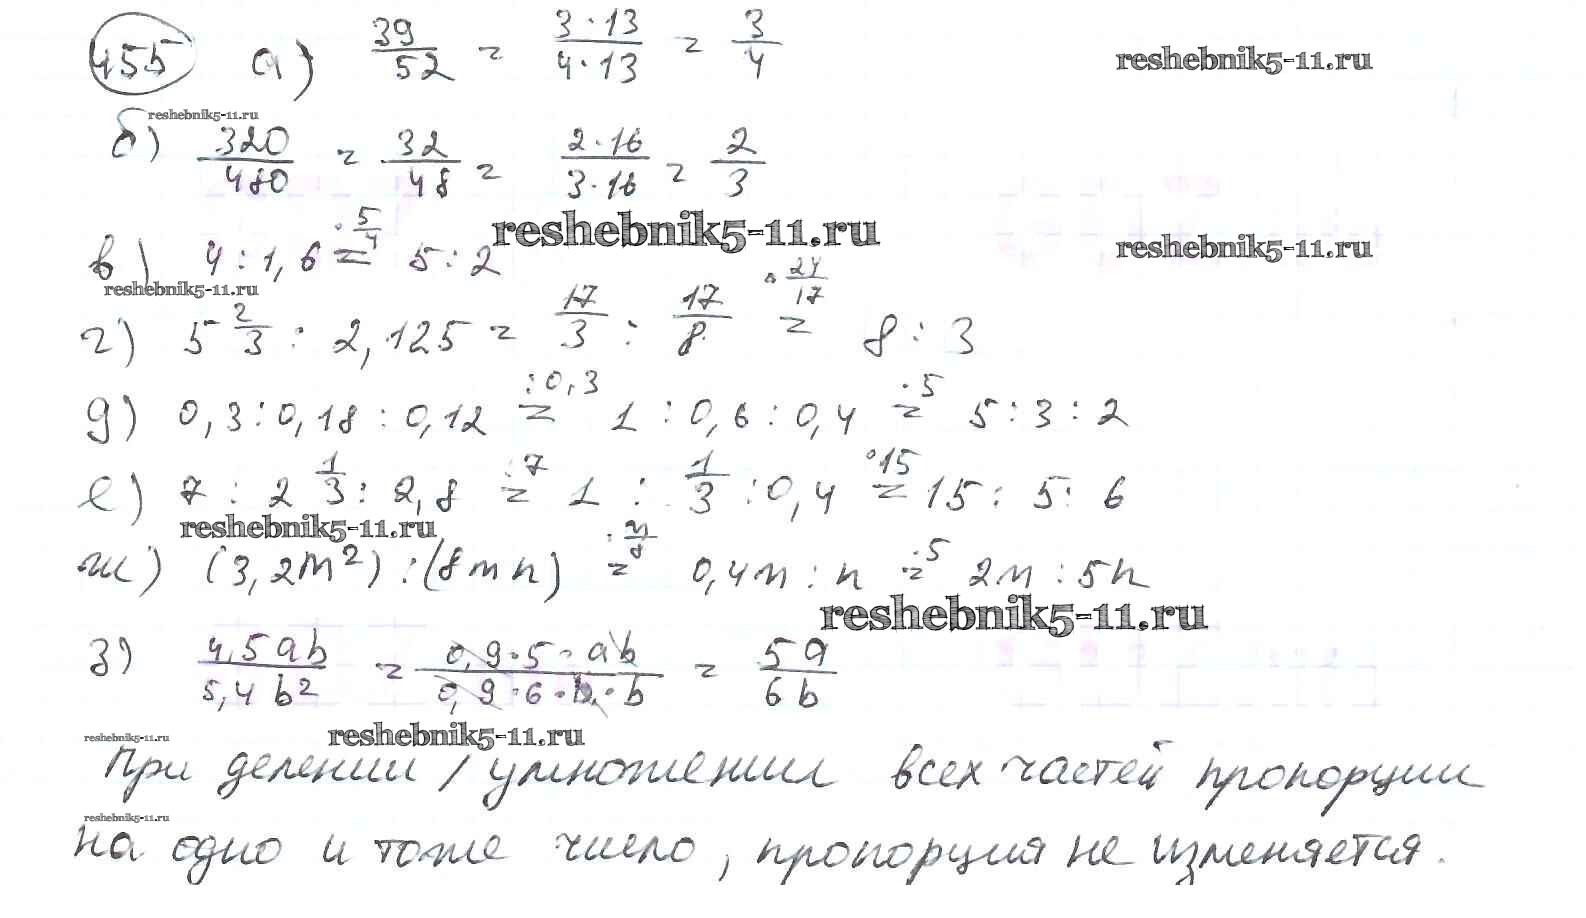 455 а) 39/52 = 3·13/4·13 = 3/4
reshebnik5-11.ru
reshebnik5-11.ru
б) 320/480 = 32/48 = 2·16/3·16 = 2/3
reshebnik5-11.ru
в) 4 : 1,6 =^{·5/4} 5 : 2
reshebnik5-11.ru
reshebnik5-11.ru
г) 5 2/3 : 2,125 = 17/3 : 17/8 =^{·24/17} 8 : 3
д) 0,3 : 0,18 : 0,12 =^{:0,3} 1 : 0,6 : 0,4 =^{·5} 5 : 3 : 2
е) 7 : 2 1/3 : 2,8 =^{:7} 1 : 1/3 : 0,4 =^{·15} 15 : 5 : 6
reshebnik5-11.ru
ж) (3,2m²) : (8mn) = 0,4m : n =^{·5} 2m : 5n
reshebnik5-11.ru
з) 4,5ab/5,4b² = 0,9·5·ab/0,9·6·b·b = 5a/6b
reshebnik5-11.ru
reshebnik5-11.ru
При делении / умножении всех частей пропорции
reshebnik5-11.ru
на одно и тоже число, пропорция не изменяется.